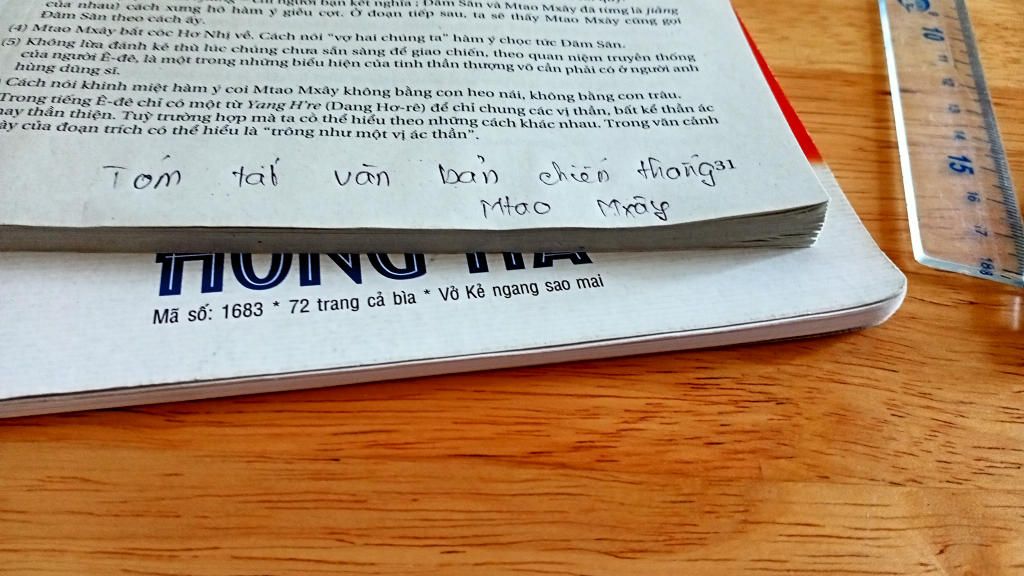 của nhau) cách xưng hô hàm ý giễu cợt. Ở đoạn tiếp sau, ta sẽ thấy Mtao Mxây cũng gọi
Đăm Săn theo cách ấy.
(4) Mtao Mxây bắt cóc Hơ Nhị về. Cách nói “vợ hai chúng ta” hàm ý chọc tức Đăm Săn.
(5) Không lừa đánh kẻ thù lúc chúng chưa sẵn sàng để giao chiến, theo quan niệm truyền thống
của người Ê-đê, là một trong những biểu hiện của tinh thần thượng võ cần phải có ở người anh
hùng dũng sĩ.
Cách nói khinh miệt hàm ý coi Mtao Mxây không bằng con heo nái, không bằng con trâu.
Trong tiếng Ê-đê chỉ có một từ Yang H're (Dang Hơ-rê) để chỉ chung các vị thần, bất kể thần ác
hay thần thiện. Tuỳ trường hợp mà ta có thể hiểu theo những cách khác nhau. Trong văn cảnh
này của đoạn trích có thể hiểu là “trông như một vị ác thần”.
Tóm tắt văn bản chiến thắng 31
Mtao Mxây
HỒNG HÀ
Mã số: 1683 * 72 trang cả bìa * Vở Kẻ ngang sao mai
10
11
12
13
14
15
16
17
18